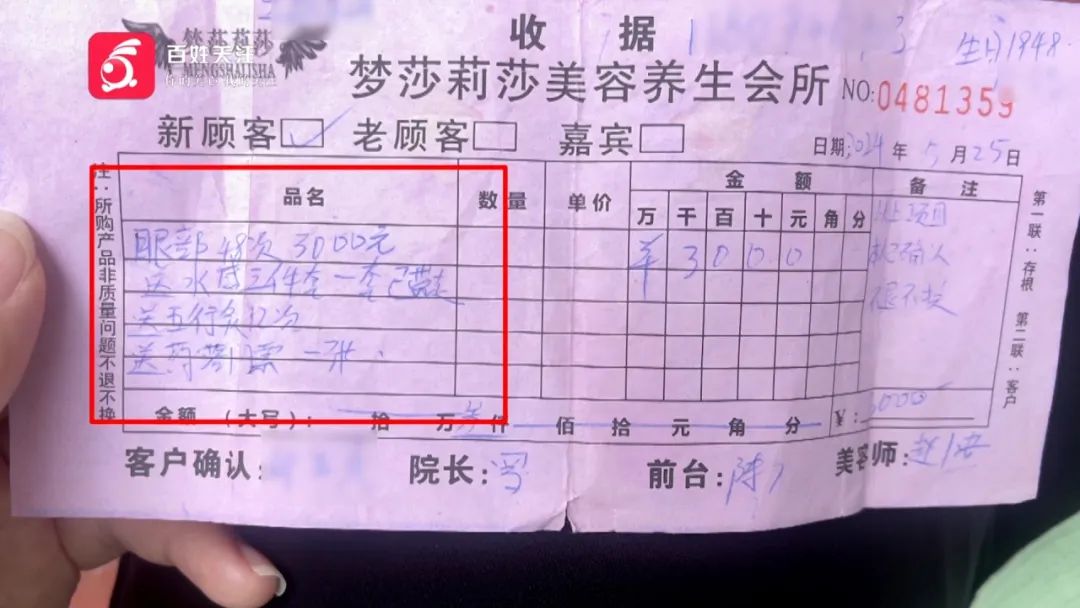 百姓关注
你的关心 我的关注
梦莎莉莎
MENGSHALISHA
收据
生日1948.
梦莎莉莎美容养生会所 NO:0481359
新顾客 老顾客 嘉宾 日期:2024年5月25日
注:所购产品非质量问题不退不换
品名 数量 单价 金额 备注
万 千 百 十 元 角 分
眼部48次 3000元 羊 3 0 0 0
送水感三件套一套已带走
送五行灸12次
送药浴门票一张.
以上项目
确认
退不换
第一联:存根 第二联:客户
金额(大写): 拾 万 叁 仟 佰 拾 元 角 分 ¥:3000
客户确认: 院长:冯 前台:陈 美容师:赵